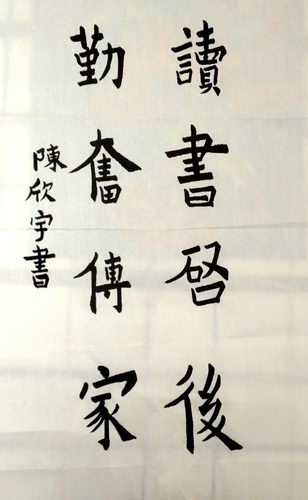 讀書啓後
勤奮傳家
陳欣宇書